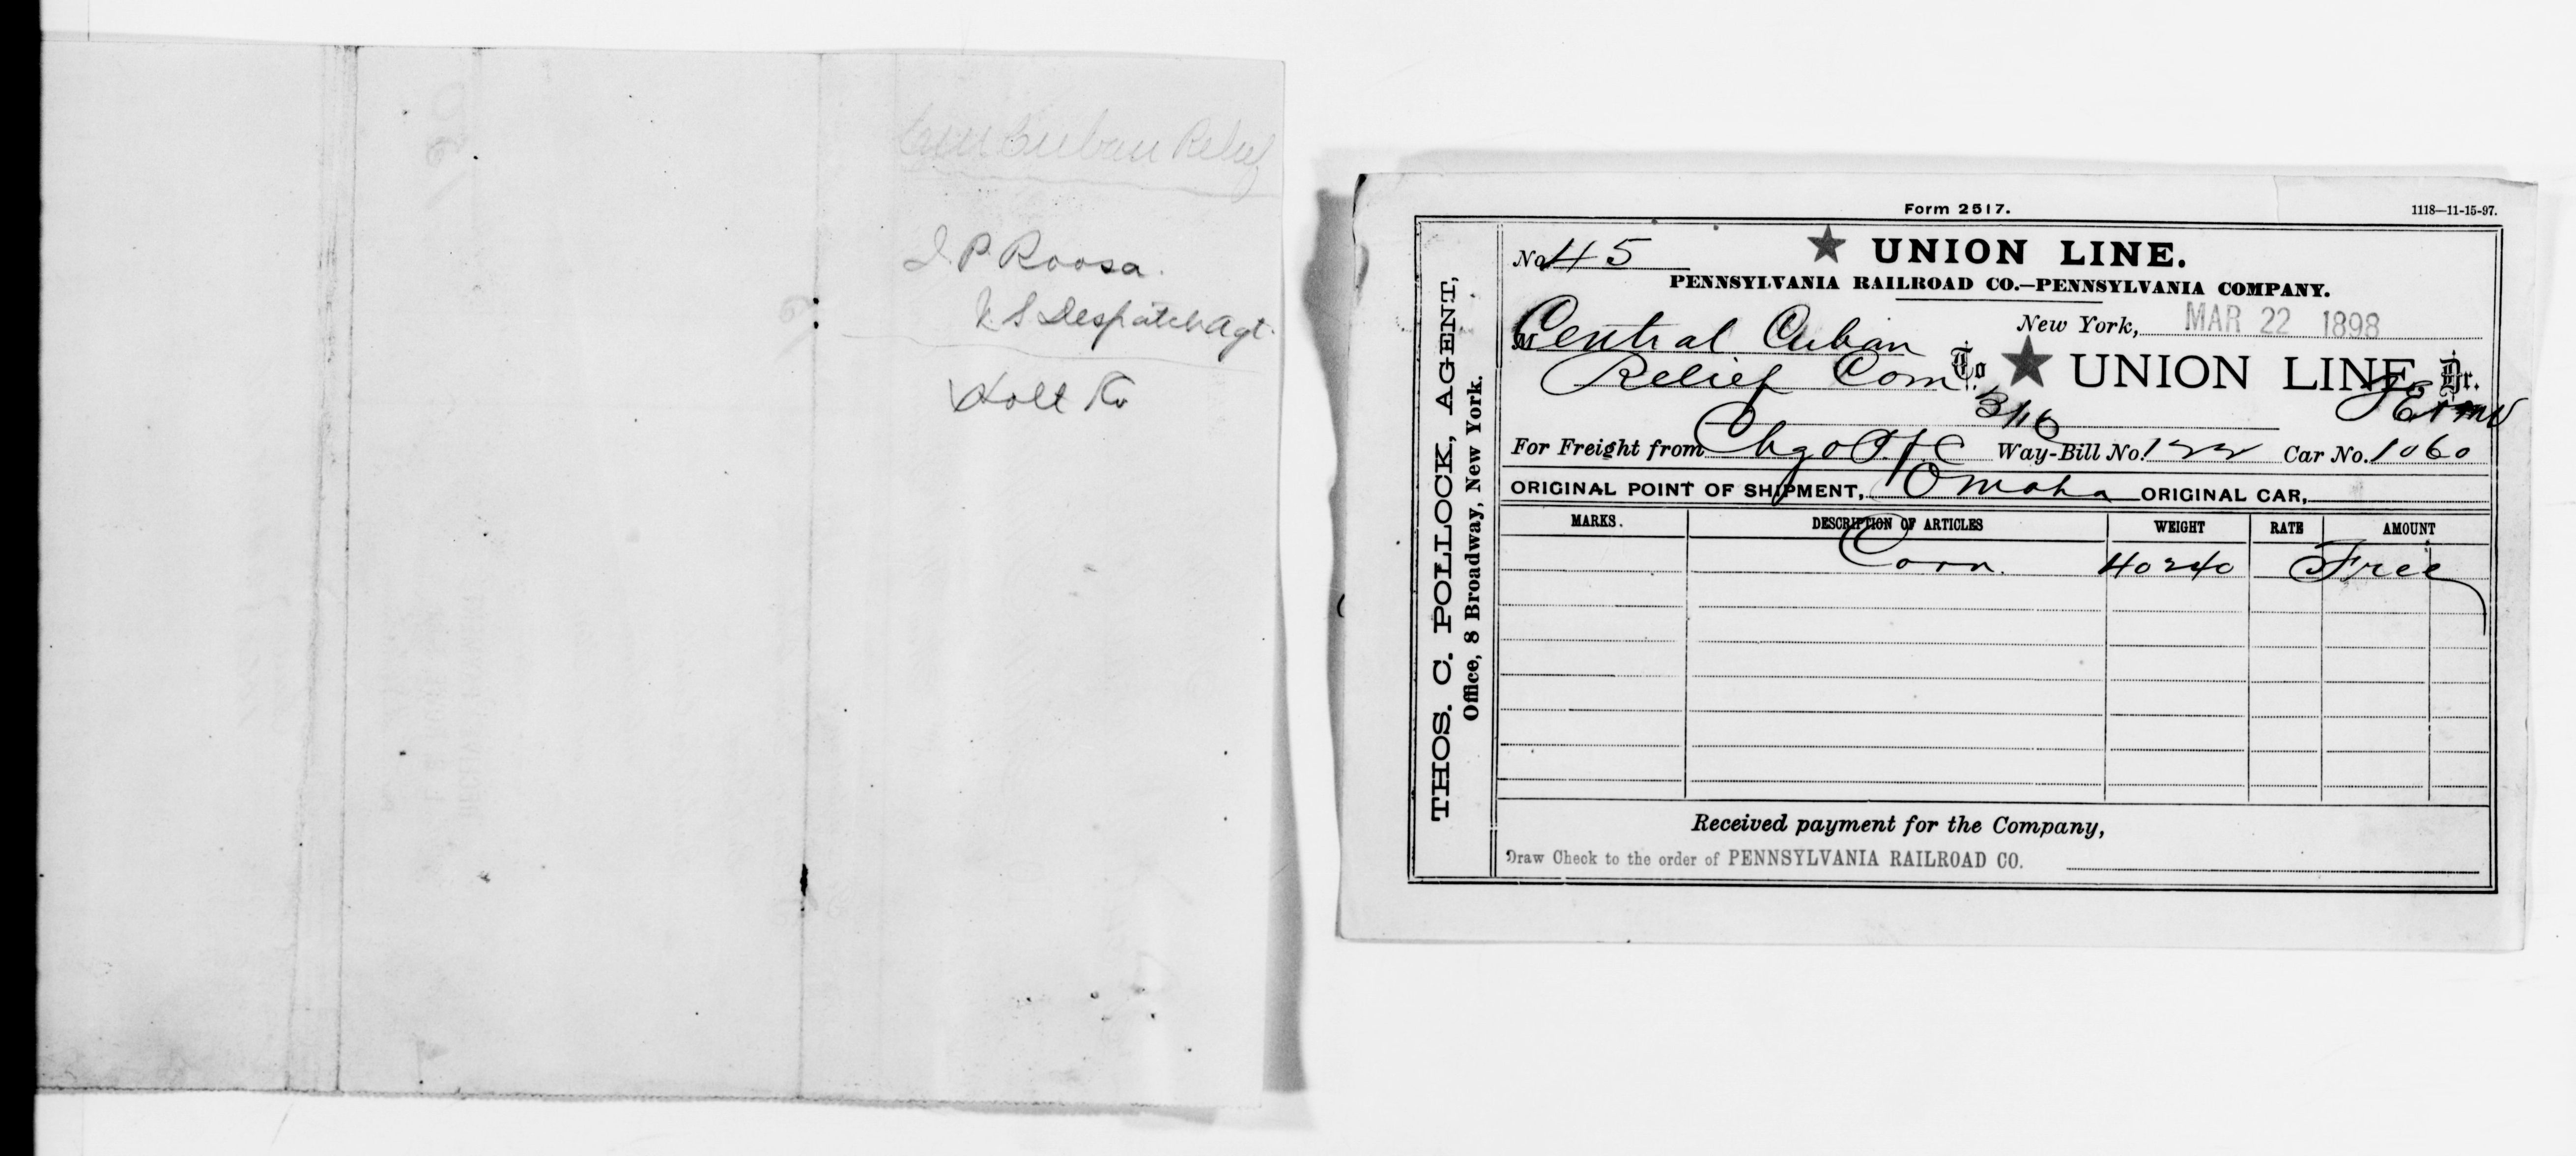 Cen Cuban Relief
I. P. Roosa.
U S Despatch Agt.
Form 2517.
1118—11-15-97.
THOS. C. POLLOCK, AGENT,
Office, 8 Broadway, New York.
No. 45
★ UNION LINE.
PENNSYLVANIA RAILROAD CO.—PENNSYLVANIA COMPANY.
New York, MAR 22 1898
M Central Cuban
Relief Com To ★ UNION LINE, Dr.
3/16
For Freight from Chgo Way-Bill No. 122 Car No. 1060
ORIGINAL POINT OF SHIPMENT, Omaha ORIGINAL CAR,
MARKS. DESCRIPTION OF ARTICLES WEIGHT RATE AMOUNT
Corn. 40240 Free
Received payment for the Company,
Draw Check to the order of PENNSYLVANIA RAILROAD CO.